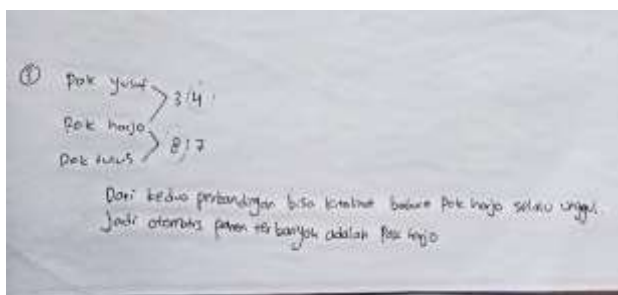 ① Pak Yusuf
3:4
Pak harjo
8:7
Pak tulus
Dari kedua perbandingan bisa kita lihat bahwa Pak harjo selalu unggul.
Jadi otomatis panen terbanyak adalah Pak harjo